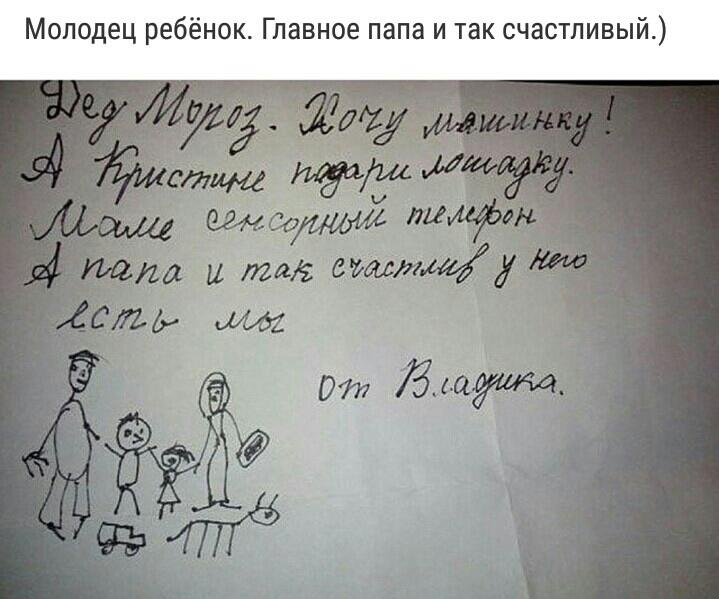 Молодец ребёнок. Главное папа и так счастливый.)
Дед Мороз. Хочу машинку!
А Кристине подари лошадку.
Маме сенсорный телефон
А папа и так счастлив у него
есть мы
от Владика.